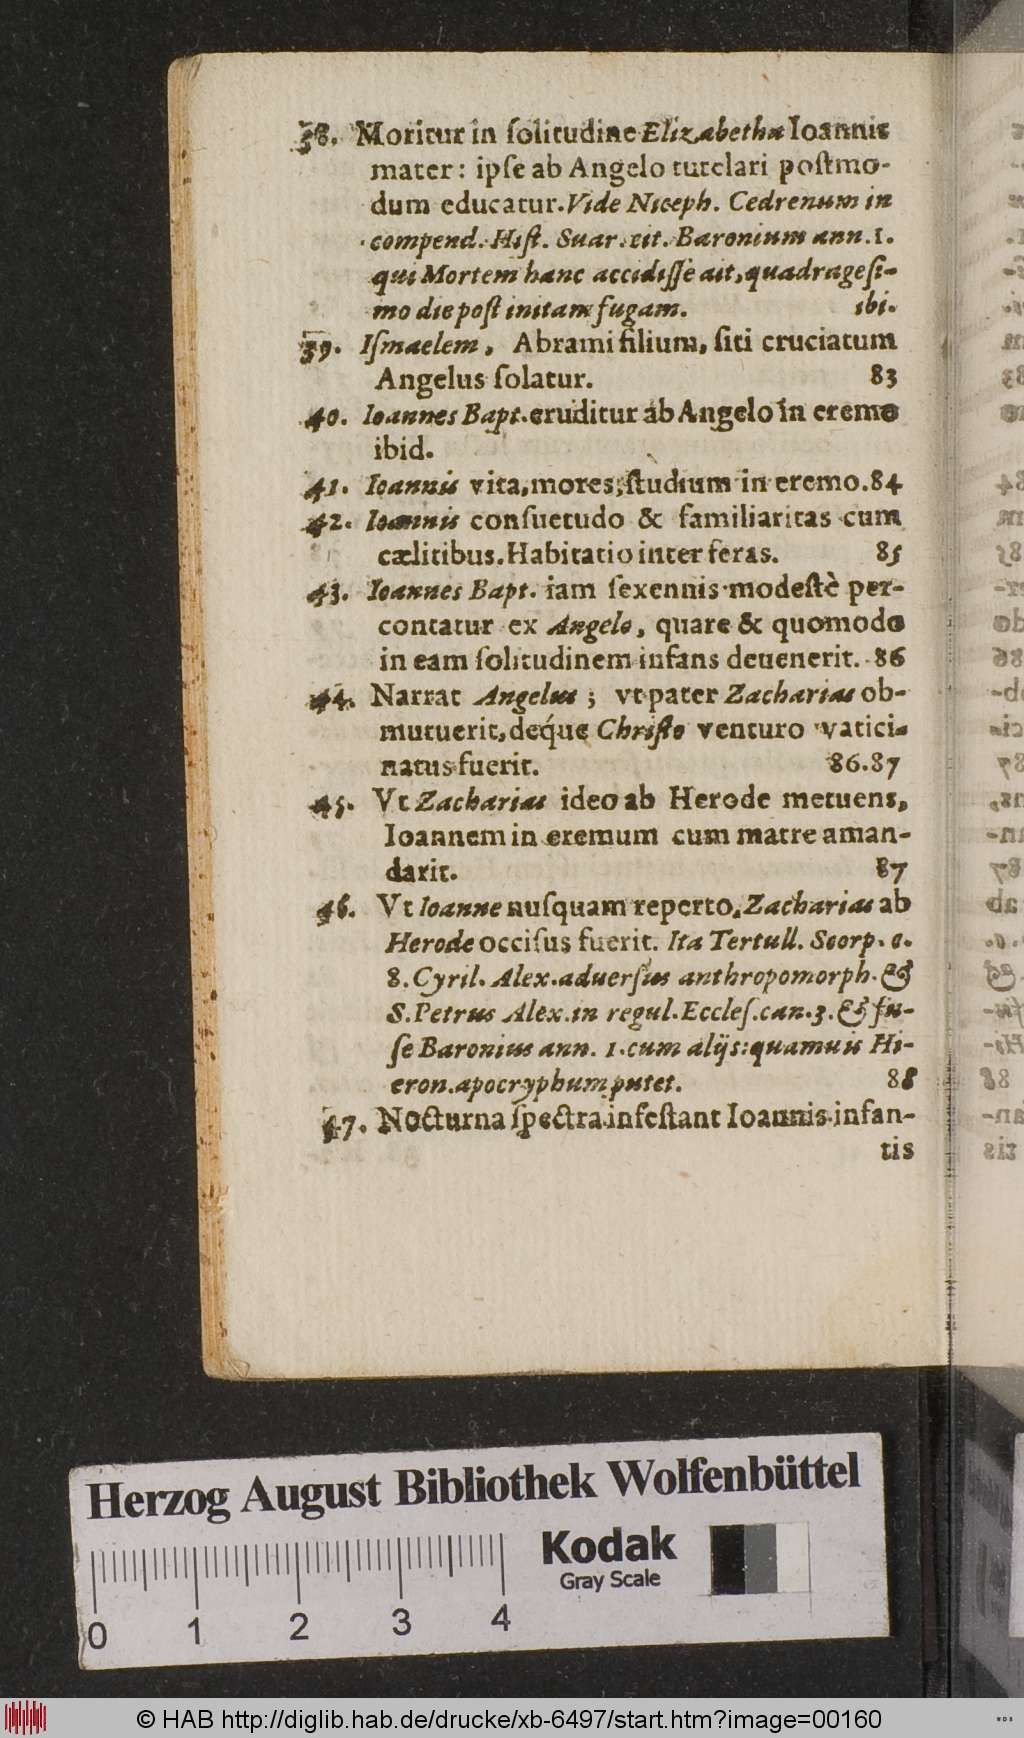 38. Moritur in ſolitudine Elizabetha Ioannis
mater: ipſe ab Angelo tutelari poſtmo-
dum educatur. Vide Niceph. Cedrenum in
compend. Hiſt. Suar. cit. Baronium ann. 1.
qui Mortem hanc accidiſſe ait, quadrageſi-
mo die poſt initam fugam. ibi.
39. Iſmaelem, Abrami filium, ſiti cruciatum
Angelus ſolatur. 83
40. Ioannes Bapt. eruditur ab Angelo in eremo
ibid.
41. Ioannis vita, mores, ſtudium in eremo. 84
42. Ioannis conſuetudo & familiaritas cum
cælitibus. Habitatio inter feras. 85
43. Ioannes Bapt. iam ſexennis modeſtè per-
contatur ex Angelo, quare & quomodo
in eam ſolitudinem infans deuenerit. 86
44. Narrat Angelus; vt pater Zacharias ob-
mutuerit, deq́ue Chriſto venturo vatici-
natus fuerit. 86.87
45. Vt Zacharias ideo ab Herode metuens,
Ioannem in eremum cum matre aman-
darit. 87
46. Vt Ioanne nuſquam reperto, Zacharias ab
Herode occiſus fuerit. Ita Tertull. Scorp. c.
8. Cyril. Alex. aduerſus anthropomorph. &
S. Petrus Alex. in regul. Eccleſ. can. 3. & fu-
ſe Baronius ann. 1. cum alijs: quamuis Hi-
eron. apocryphum putet. 88
47. Nocturna ſpectra infeſtant Ioannis infan-
tis
Herzog August Bibliothek Wolfenbüttel
Kodak
Gray Scale
0 1 2 3 4
© HAB http://diglib.hab.de/drucke/xb-6497/start.htm?image=00160